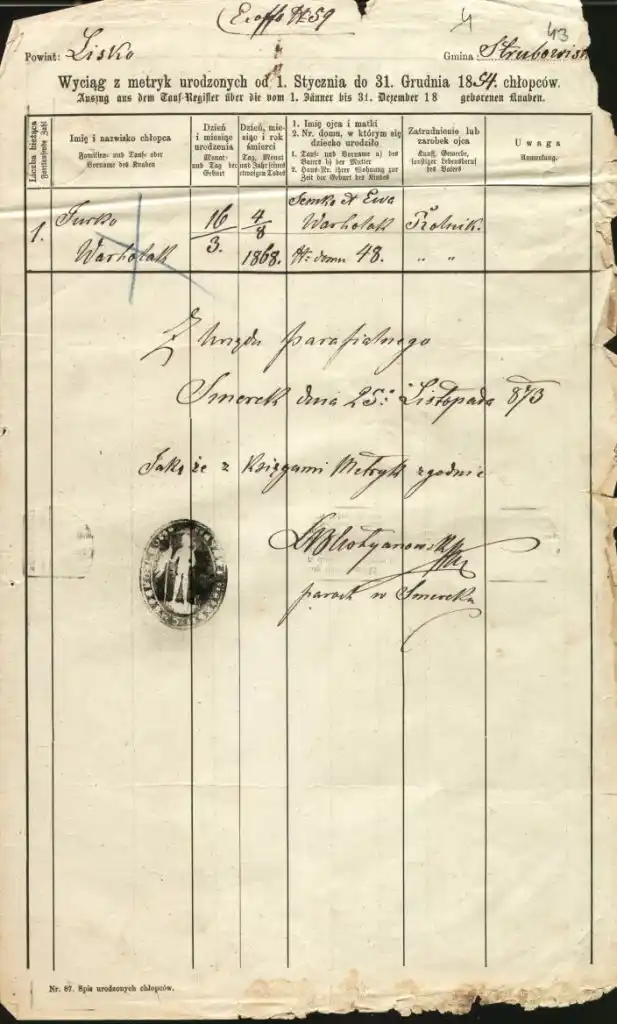 № 59
4
43
Powiat: Lisko
Gmina Strubowiska
Wyciąg z metryk urodzonych od 1. Stycznia do 31. Grudnia 1854. chłopców.
Auszug aus dem Tauf-Register über die vom 1. Jänner bis 31. Dezember 18 geborenen Knaben.
Liczba bieżąca
Fortlaufende Zahl
Imię i nazwisko chłopca
Familien- und Tauf- oder
Vorname des Knaben
Dzień
i miesiąc
urodzenia
Monat
und Tag der
Geburt
Dzień, mie-
siąc i rok
śmierci
Tag, Monat
und Jahr seines
etwaigen Todes
1. Imię ojca i matki
2. Nr. domu, w którym się
dziecko urodziło
1. Tauf- und Vorname a) des
Vaters b) der Mutter
2. Haus-Nr. ihrer Wohnung zur
Zeit der Geburt des Kindes
Zatrudnienie lub
zarobek ojca
Kunst, Gewerbe,
sonstiger Lebensberuf
des Vaters
Uwaga
Anmerkung.
1.
Jurko
Warholak
16
3.
4
8
1868.
Semko & Ewa
Warholak
№ domu 48.
Rolnik.
" "
Z Urzędu parafialnego
Smerek dnia 25. Listopada 873
Jako że z Księgami Metryk zgodnie
paroch w Smereku
Nr. 87. Spis urodzonych chłopców.